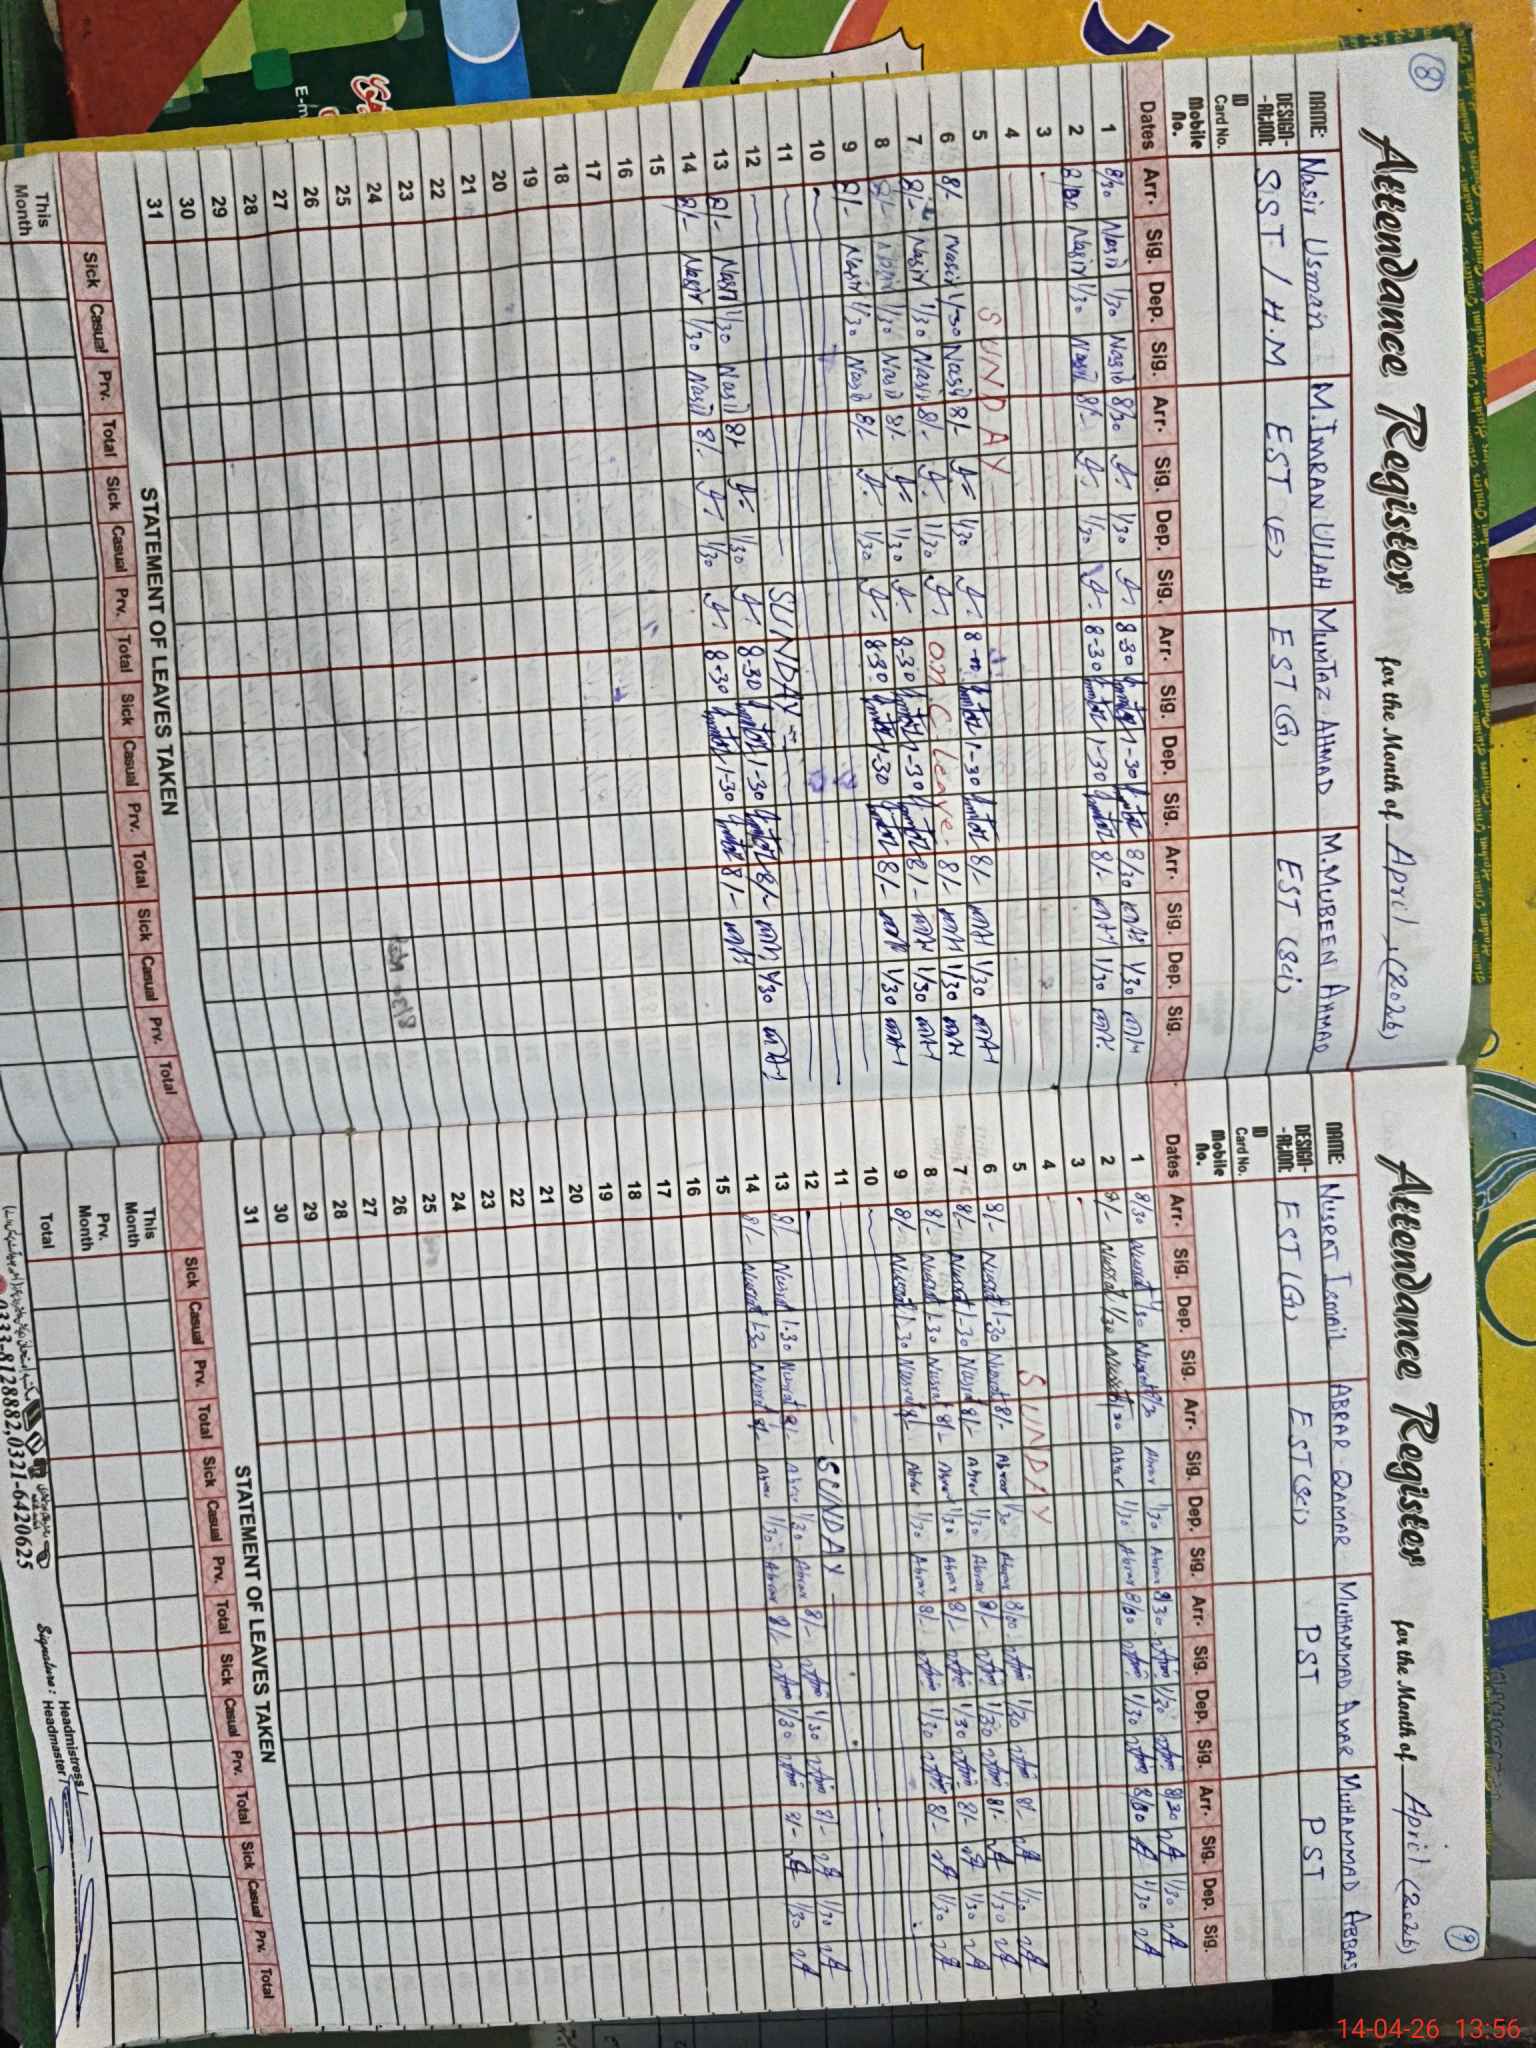 8
Attendance Register for the Month of April, (2026)
NAME: Nasir Usman M. IMRAN ULLAH MUMTAZ AHMAD M. MUBEEN AHMAD
DESIGN-ATION: SST / H.M EST (E) EST (G) EST (Sci)
ID Card No.
Mobile No.
Dates Arr. Sig. Dep. Sig. Arr. Sig. Dep. Sig. Arr. Sig. Dep. Sig. Arr. Sig. Dep. Sig.
1 8/30 Nasir 1/30 Nasir 8/30 1/30 8-30 1-30 8/30 MA 1/30 MA
2 8/00 Nasir 1/30 Nasir 8/- 1/30 8-30 1-30 8/- MA 1/30 MA
3
4
5 SUNDAY
6 8/- Nasir 1/30 Nasir 8/- 1/30 1-30 8/- MA 1/30 MA
7 8/- Nasir 1/30 Nasir 8/- 1/30 on C. Leave 8/- MA 1/30 MA
8 8/- Nasir 1/30 Nasir 8/- 1/30 8-30 1-30 8/- MA 1/30 MA
9 8/- Nasir 1/30 Nasir 8/- 1/30 8-30 1-30 8/- MA 1/30 MA
10
11
12 SUNDAY
13 8/- Nasir 1/30 Nasir 8/- 1/30 8-30 1-30 8/- MA 1/30 MA
14 8/- Nasir 1/30 Nasir 8/- 1/30 8-30 1-30 8/- MA
15
16
17
18
19
20
21
22
23
24
25
26
27
28
29
30
31
STATEMENT OF LEAVES TAKEN
Sick Casual Prv. Total Sick Casual Prv. Total Sick Casual Prv. Total Sick Casual Prv. Total
This Month
9
Attendance Register for the Month of April (2026)
NAME: NUSRAT ISMAIL ABRAR QAMAR MUHAMMAD AMAR MUHAMMAD ABBAS
DESIGN-ATION: EST (G) EST (Sci) PST PST
ID Card No.
Mobile No.
Dates Arr. Sig. Dep. Sig. Arr. Sig. Dep. Sig. Arr. Sig. Dep. Sig. Arr. Sig. Dep. Sig.
1 8/30 Nusrat 1/30 Nusrat 8/30 Abrar 1/30 Abrar 8/30 1/30 8/30 1/30
2 8/- Nusrat 1/30 Nusrat Abrar 1/30 Abrar 8/00 1/30 8/00 1/30
3
4
5 SUNDAY
6 8/- Nusrat 1-30 Nusrat 8/- Abrar 1/30 Abrar 8/00 1/30 8/-
7 8/- Nusrat 1-30 Nusrat 8/- Abrar 1/30 Abrar 8/- 1/30 8/- 1/30
8 8/- Nusrat 1-30 Nusrat 8/- Abrar 1/30 Abrar 8/- 1/30 8/- 1/30
9 8/- Nusrat 1-30 Nusrat 8/- Abrar 1/30 Abrar 8/- 1/30 8/- 1/30
10
11
12 SUNDAY
13 8/- Nusrat 1-30 Nusrat 8/- Abrar 1/30 Abrar 8/- 1/30 8/- 1/30
14 8/- Nusrat 1-30 Nusrat 8/- Abrar 1/30 Abrar 8/- 1/30 8/- 1/30
15
16
17
18
19
20
21
22
23
24
25
26
27
28
29
30
31
STATEMENT OF LEAVES TAKEN
Sick Casual Prv. Total Sick Casual Prv. Total Sick Casual Prv. Total Sick Casual Prv. Total
This Month
Prv. Month
Total
Headmistress /
Signature: Headmaster /
0333-8128882,0321-6420625
14-04-26 13:56